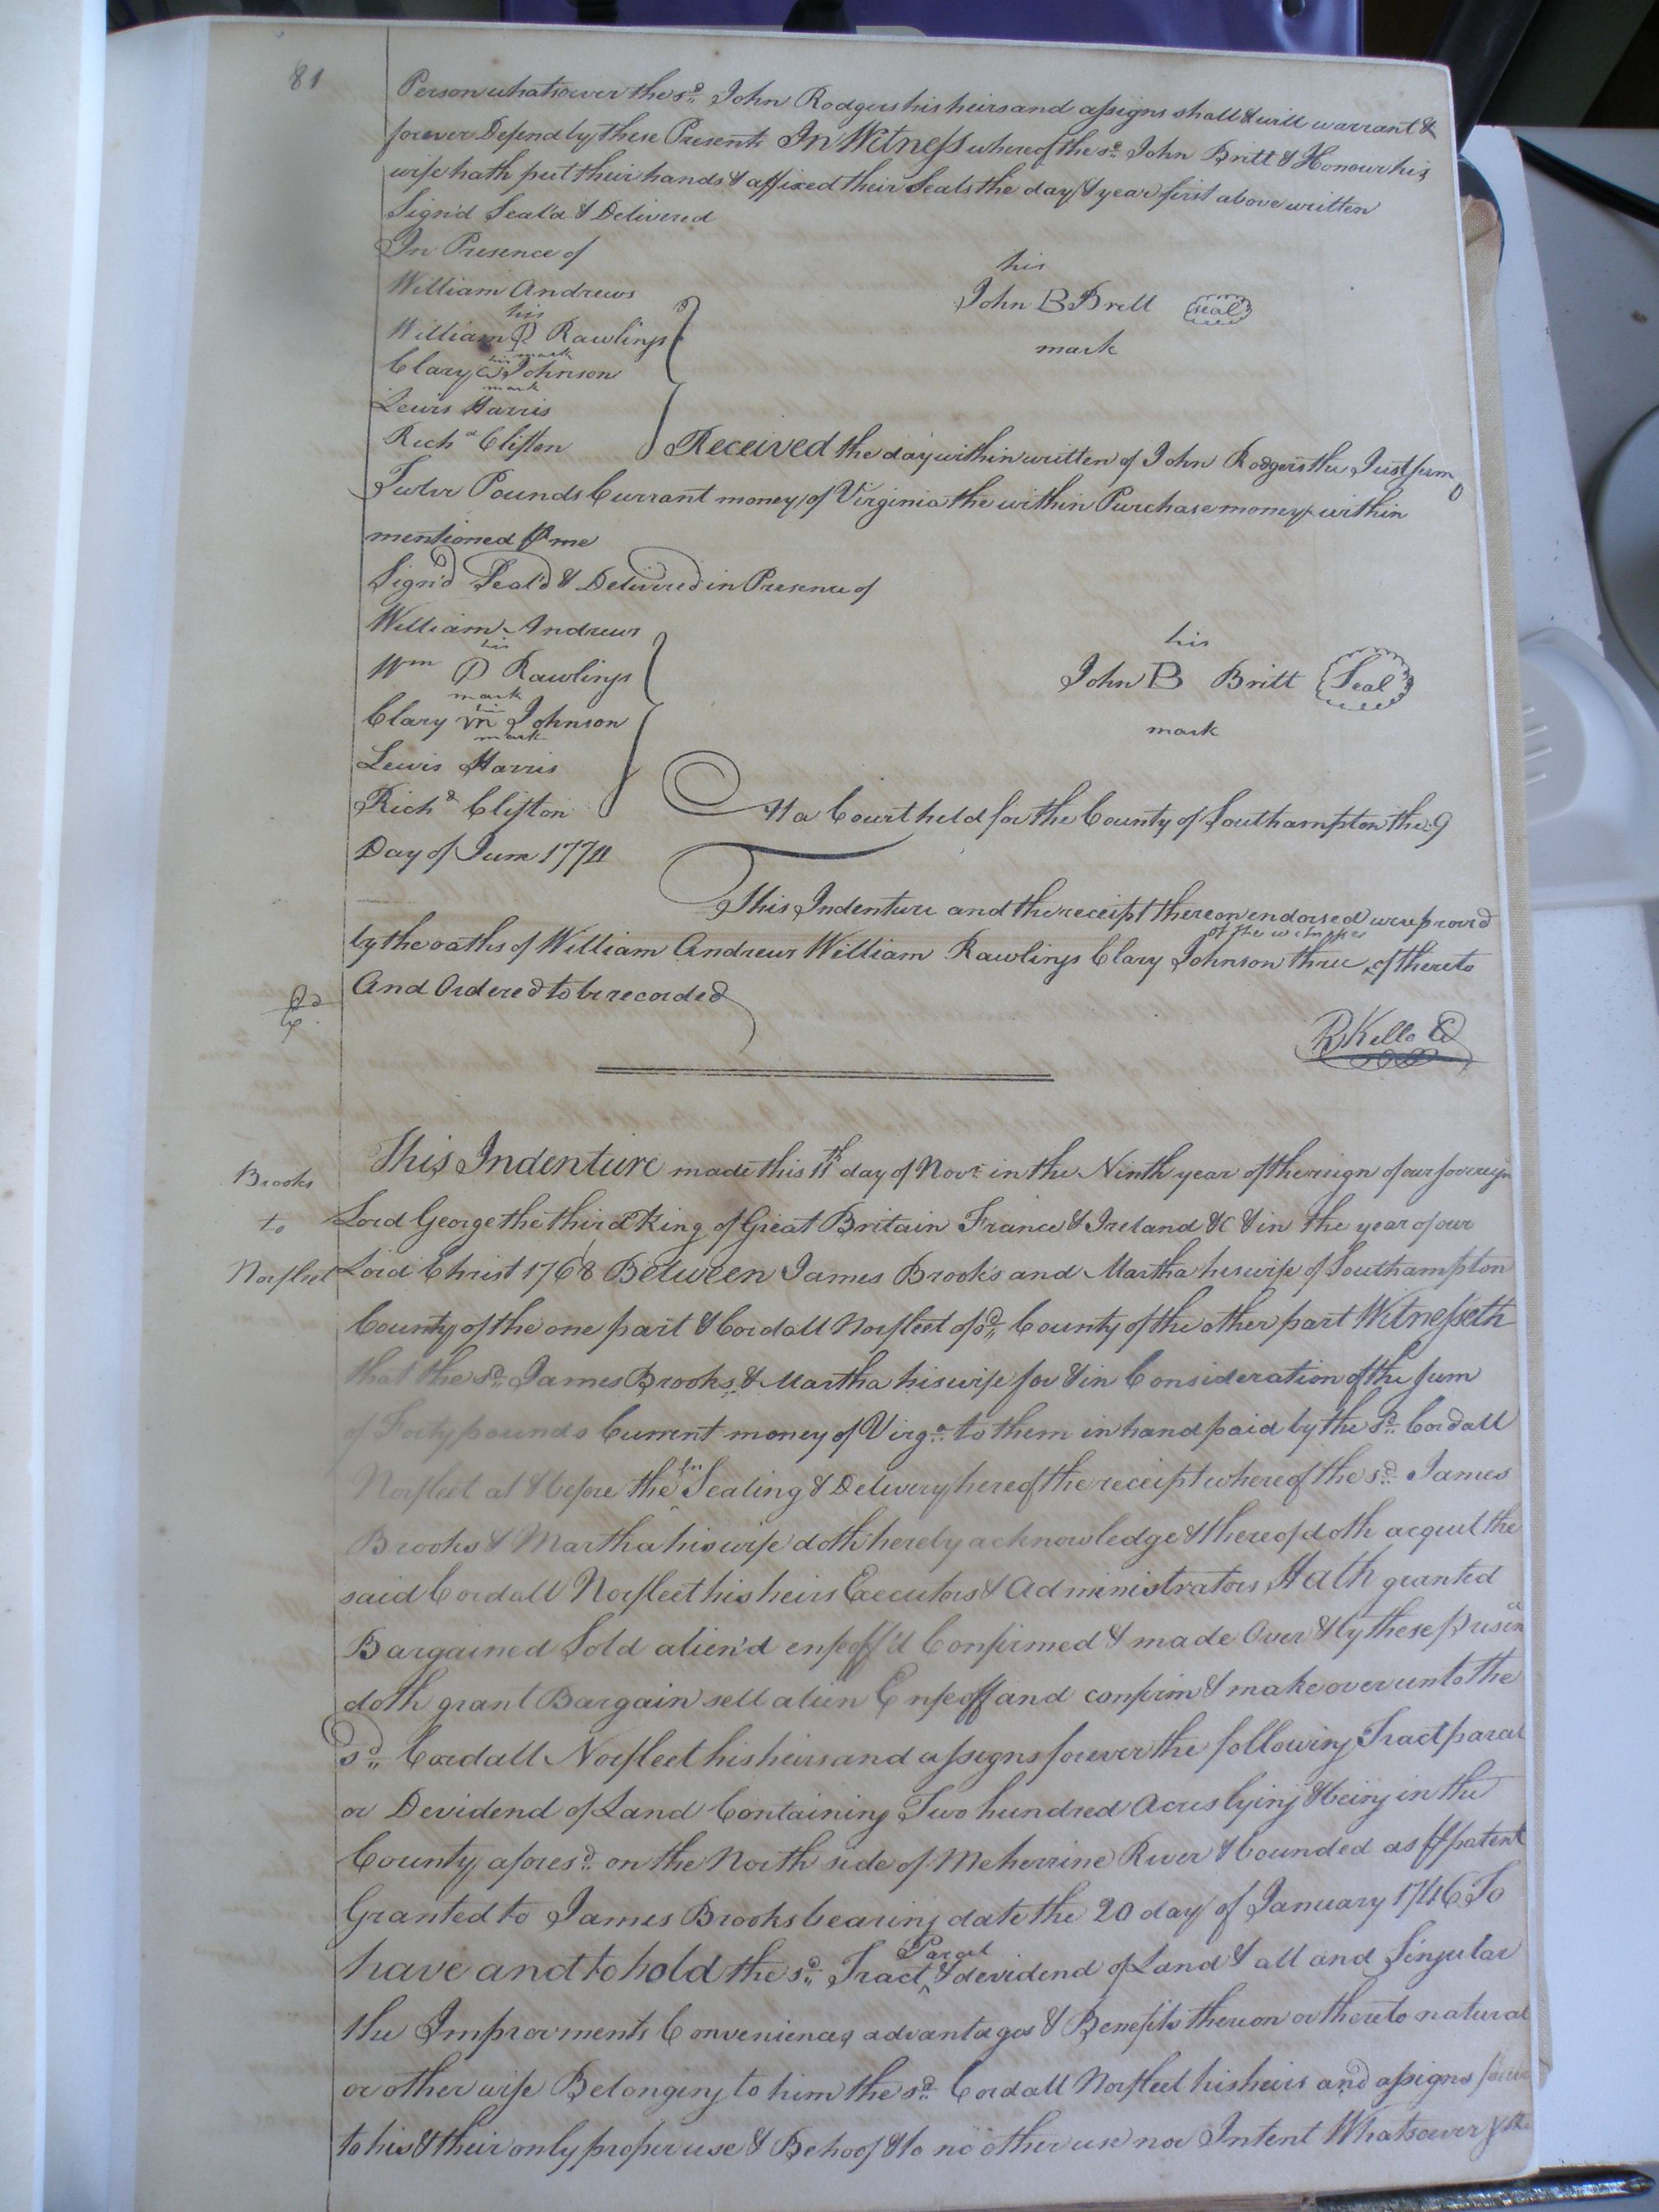 81
Person whatsoever the sd John Rodgers his heirs and assigns shall & will warrant &
forever Defend by these Presents In Witness whereof the sd John Britt & Honour his
wife hath put their hands & affixed their Seals the day & year first above written
Sign'd Seal'd & Delivered
In Presence of
William Andrews
his
William P Rawlings
mark
his
Clary Johnson
mark
Lewis Harris
Richd Clifton
his
John B Brett seal
mark
Received the day within written of John Rodgers the Just sum
Pounds Currant money of Virginia the within Purchase money within
mentioned me
Sign'd Seal'd & Deliver'd in Presence of
William Andrews
his
Wm P Rawlings
mark
his
Clary m Johnson
mark
Lewis Harris
Richd Clifton
his
John B Britt Seal
mark
At a Court held for the County of Southampton the 9
Day of June 1774
This Indenture and the receipt thereon endorsed were prov'd
by the oaths of William Andrews William Rawlings Clary Johnson three of the witnesses of thereto
And Ordered to be recorded
R Kello
Brooks
to
Norfleet
This Indenture made this 11th day of Novr in the Ninth year of the reign of our sovereign
Lord George the third King of Great Britain France & Ireland &C & in the year of our
Lord Christ 1768 Between James Brooks and Martha his wife of Southampton
County of the one part & Cordall Norfleet of sd County of the other part Witnesseth
that the sd James Brooks & Martha his wife for & in Consideration of the sum
of Forty pounds Current money of Virga to them in hand paid by the sd Cordall
Norfleet at & before the Sealing & Delivery hereof the receipt whereof the sd James
Brooks & Martha his wife doth hereby acknowledge & thereof doth acquit the
said Cordall Norfleet his heirs Executors & Administrators Hath granted
Bargained Sold alien'd enfeoff'd Confirmed & made Over & by these
doth grant Bargain sell alien Enfeoff and confirm & make over unto the
sd Cordall Norfleet his heirs and assigns forever the following Tract parcel
or Devidend of Land Containing Two hundred Acres lying & being in the
County aforesd on the North side of Meherrine River & bounded as patent
Granted to James Brooks bearing date the 20 day of January 1746 To
have and to hold the sd Tract Parcel & devidend of Land & all and Singular
the Improvments Conveniences advantages & Benefits thereon or thereto natural
or other wise Belonging to him the sd Cordall Norfleet his heirs and assigns
to his & their only proper use & Behoof & to no other use nor Intent Whatsoever & the